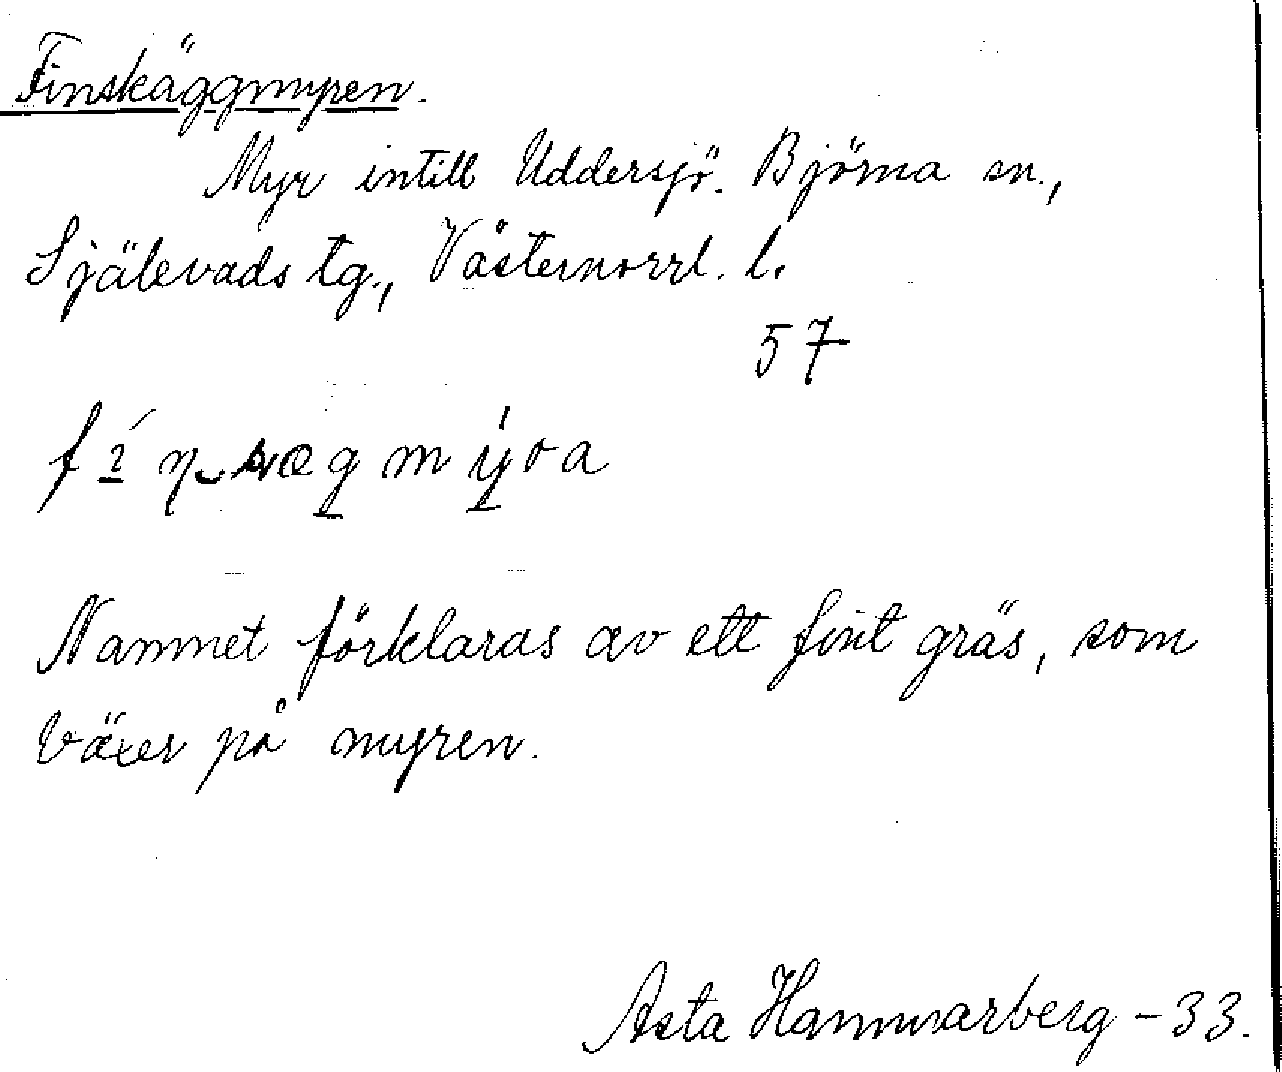 Finskäggmyren.
Myr intill Uddersjö. Björna sn.,
Själevads tg., Västernorrl. l.
57
Namnet förklaras av ett fint gräs, som
växer på myren.
Asta Hammarberg - 33.